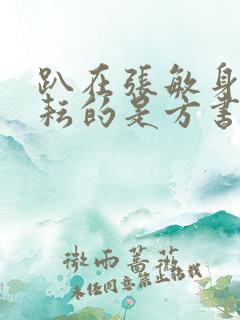 趴在張敏身
耘的是方書
微雨薔薇
未經同意禁止轉載